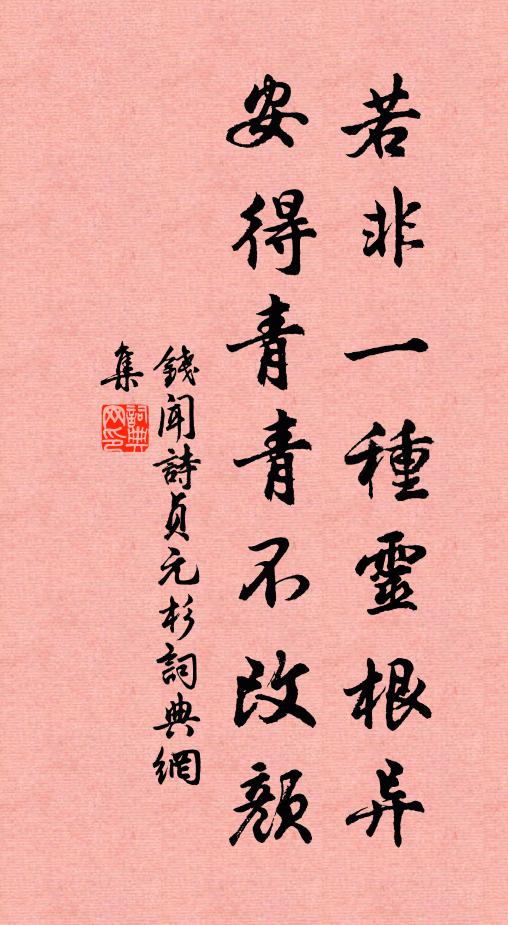 若非一種靈根异
安得青青不改顏
錢聞詩貞元杉詞典網
集
詞典
网印